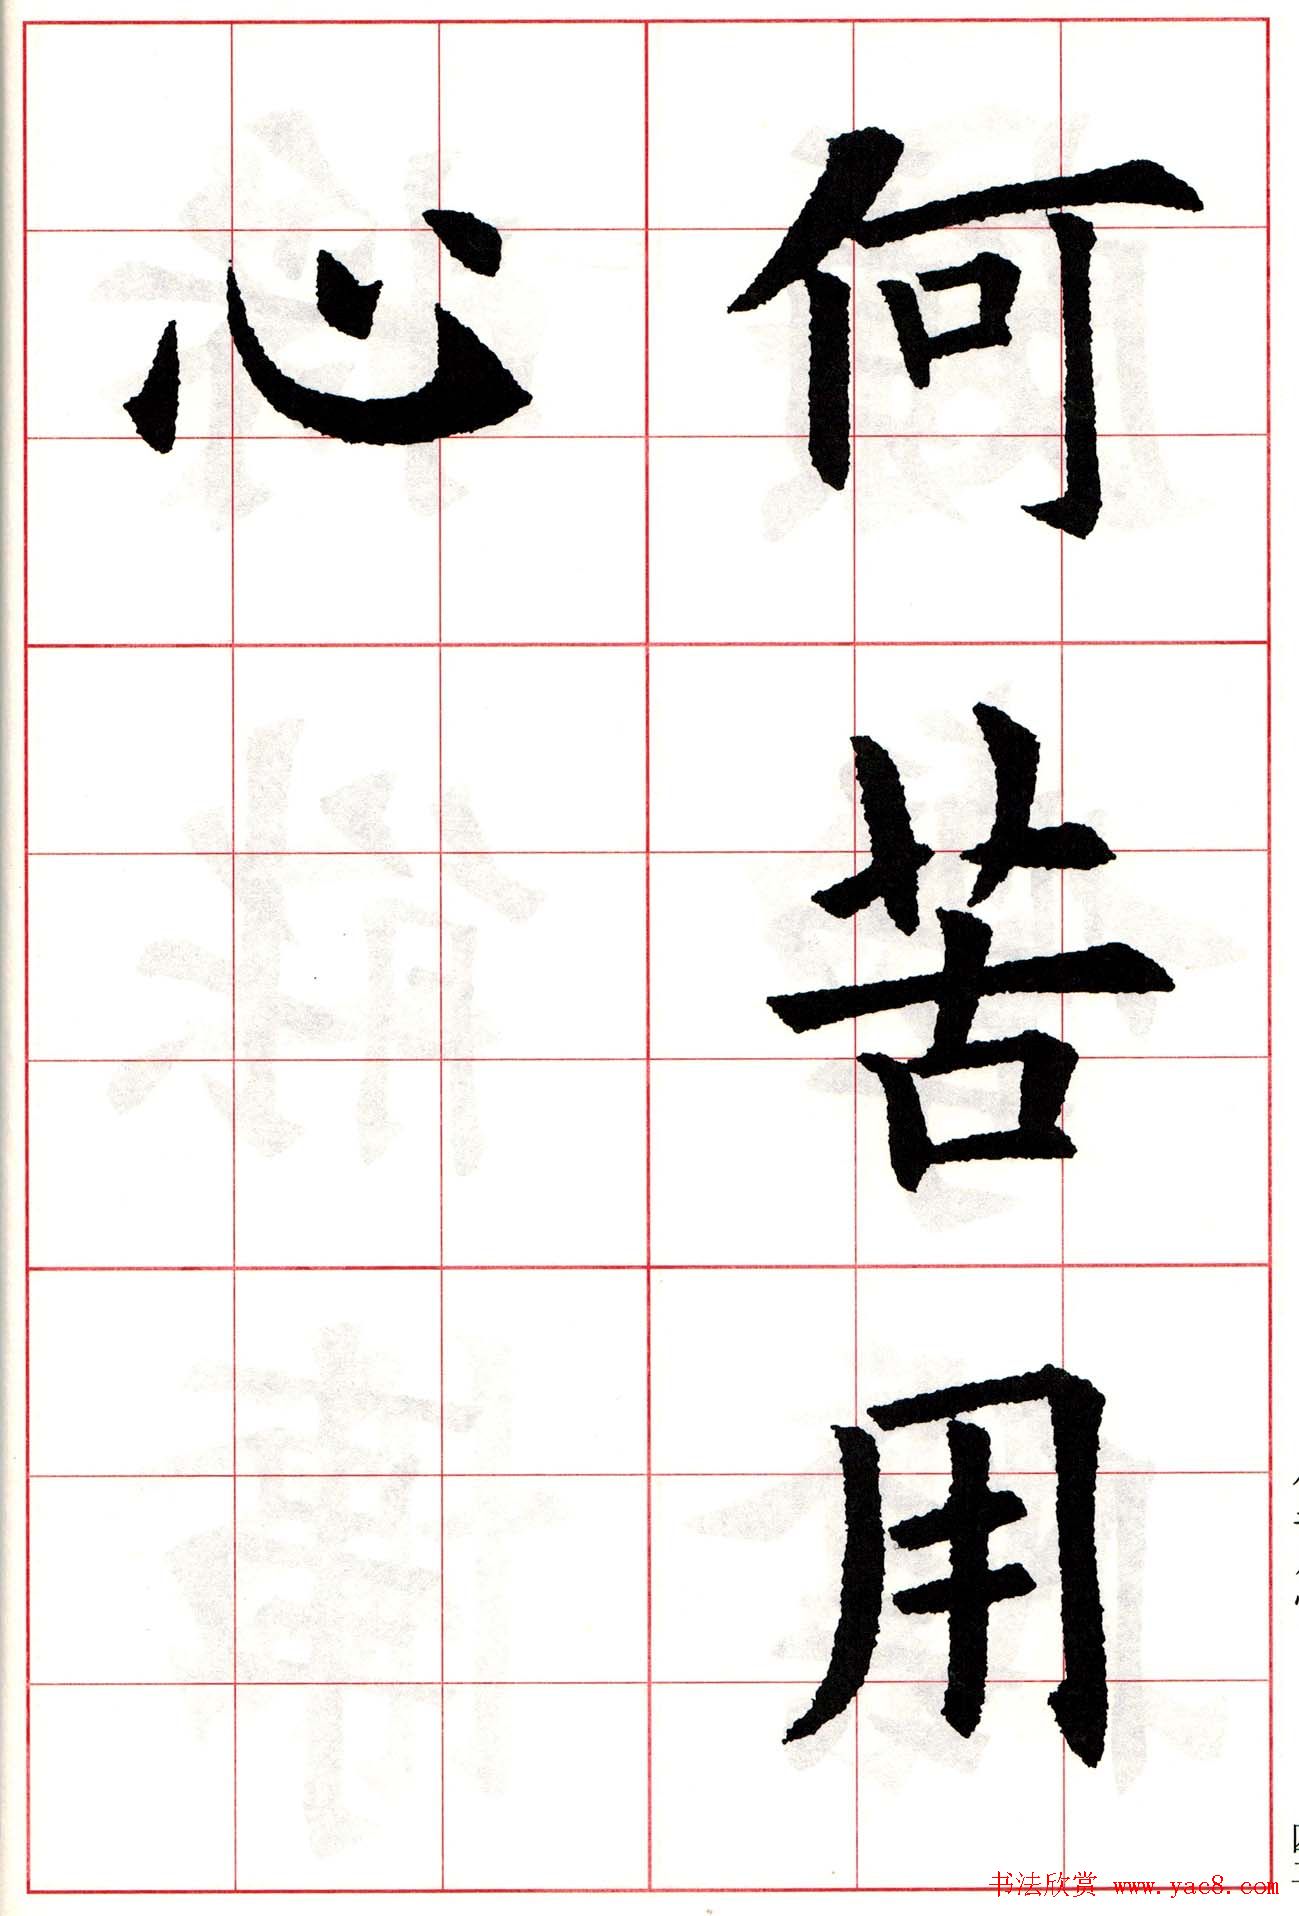 何苦用
心
书法欣赏 www.yac8.com